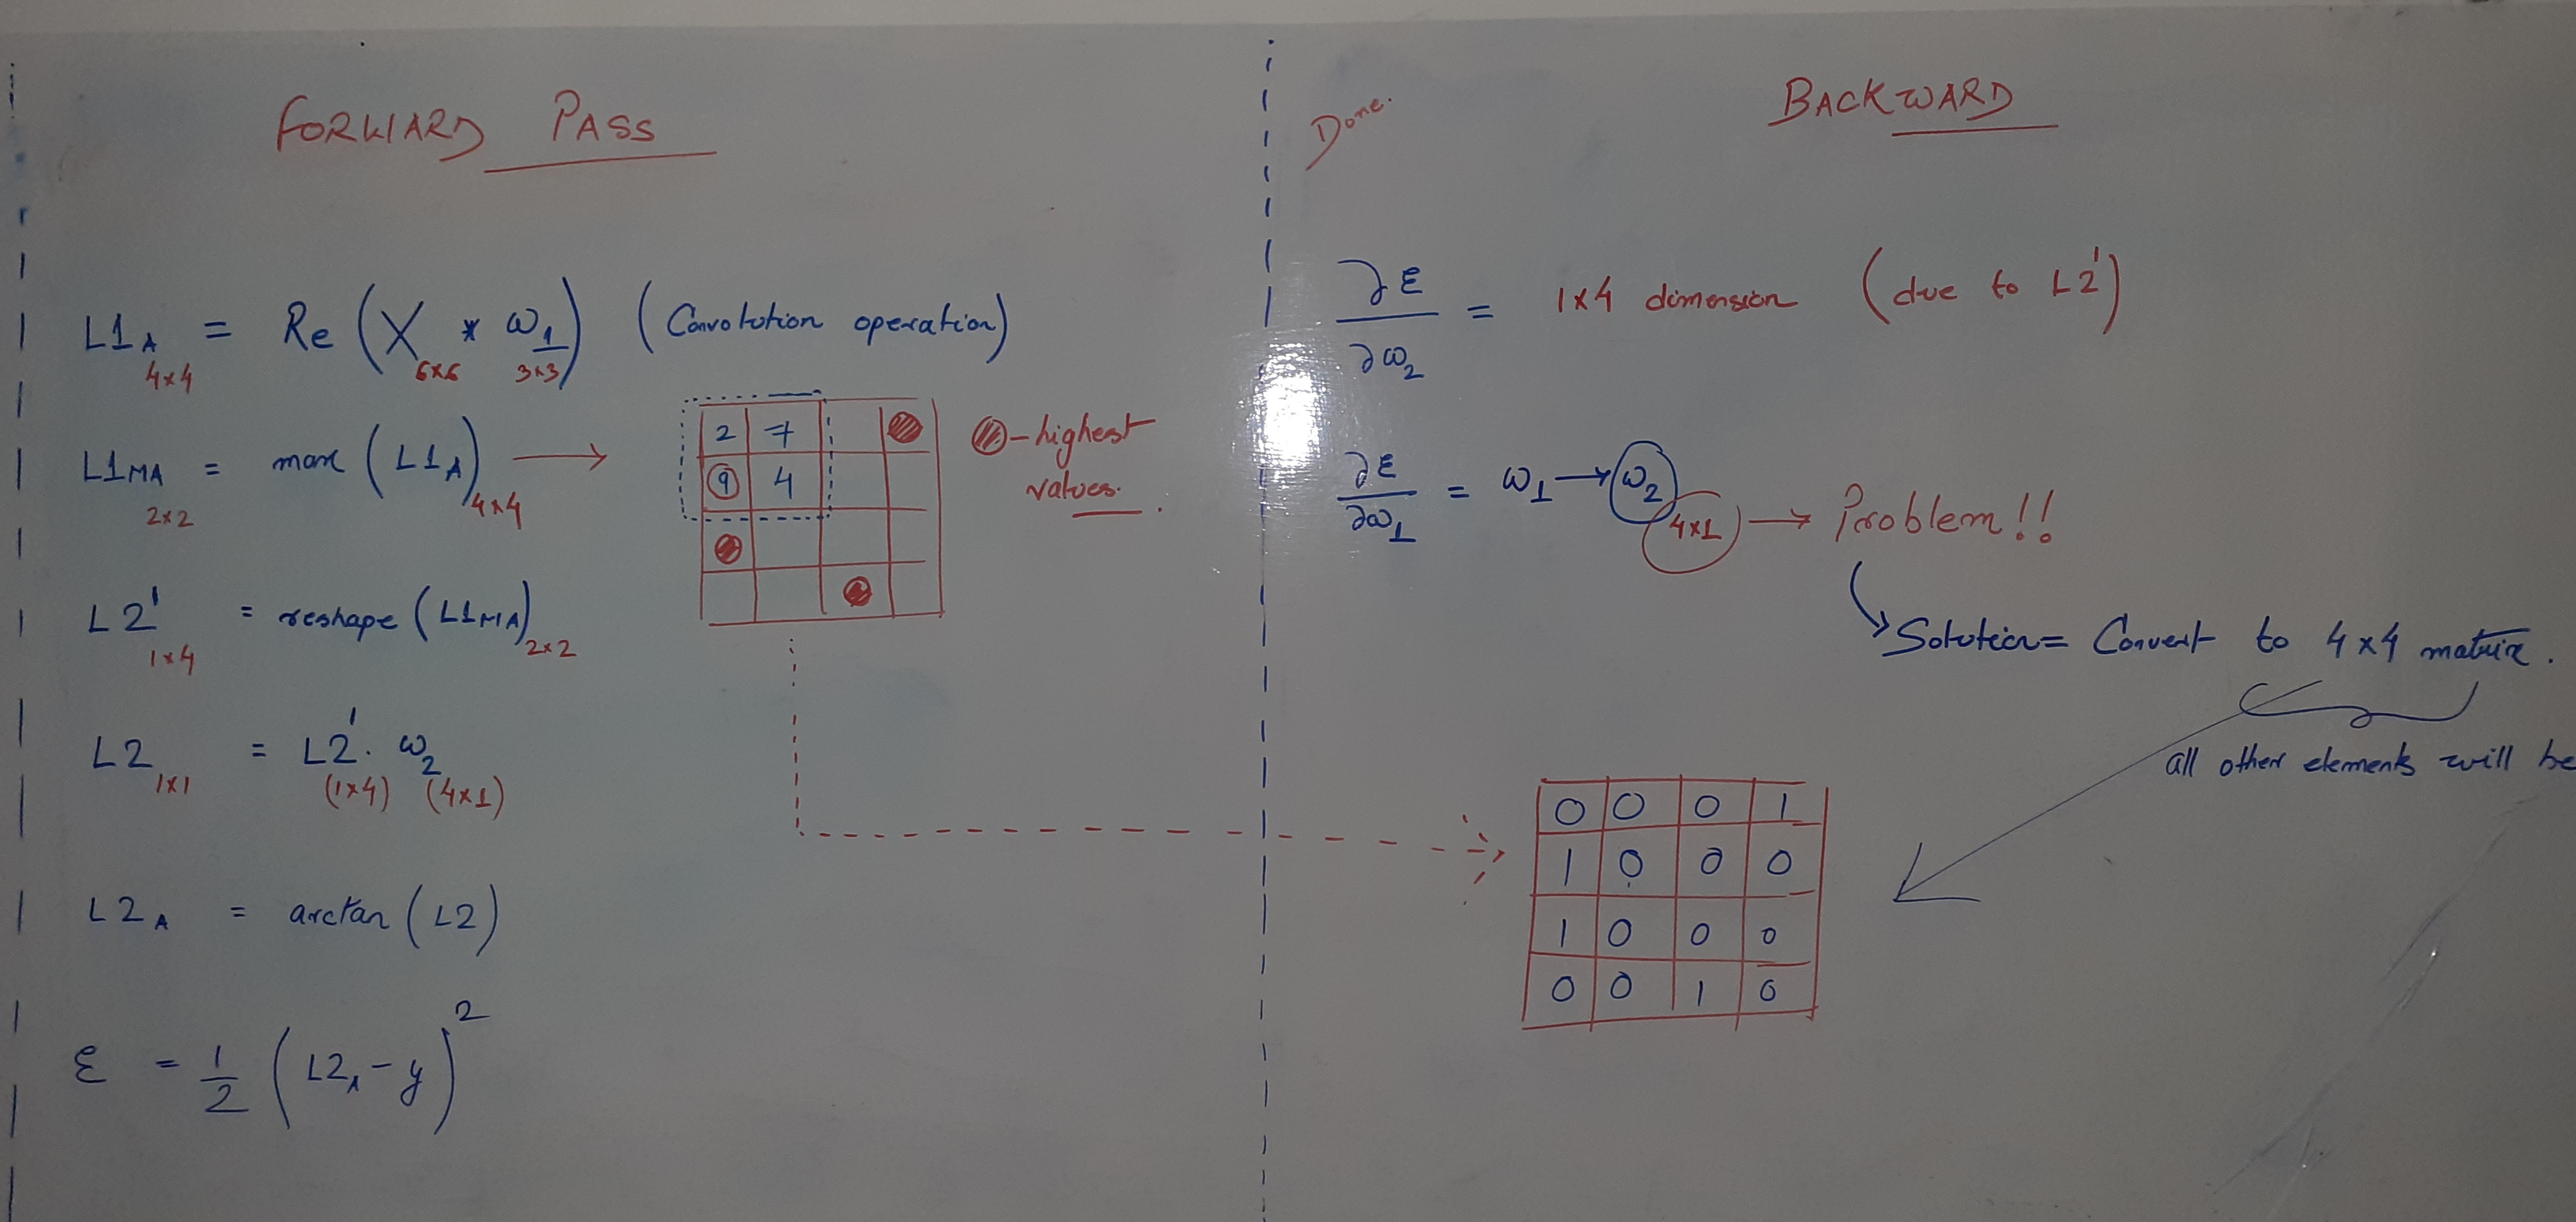 FORWARD PASS
L1A = Re (X * ω1) (Convolution operation)
4x4 6x6 3x3
L1MA = max (L1A) →
2x2 4x4
2 7
9 4
- highest
values.
L2' = reshape (L1MA)
1x4 2x2
L2 = L2' . ω2
1x1 (1x4) (4x1)
L2A = arctan (L2)
ε = 1/2 (L2A - y)²
Done.
BACKWARD
∂ε/∂ω2 = 1x4 dimension (due to L2')
∂ε/∂ω1 = ω1 → ω2 4x1 → Problem!!
Solution = Convert to 4x4 matrix.
all other elements will be
0 0 0 1
1 0 0 0
1 0 0 0
0 0 1 0